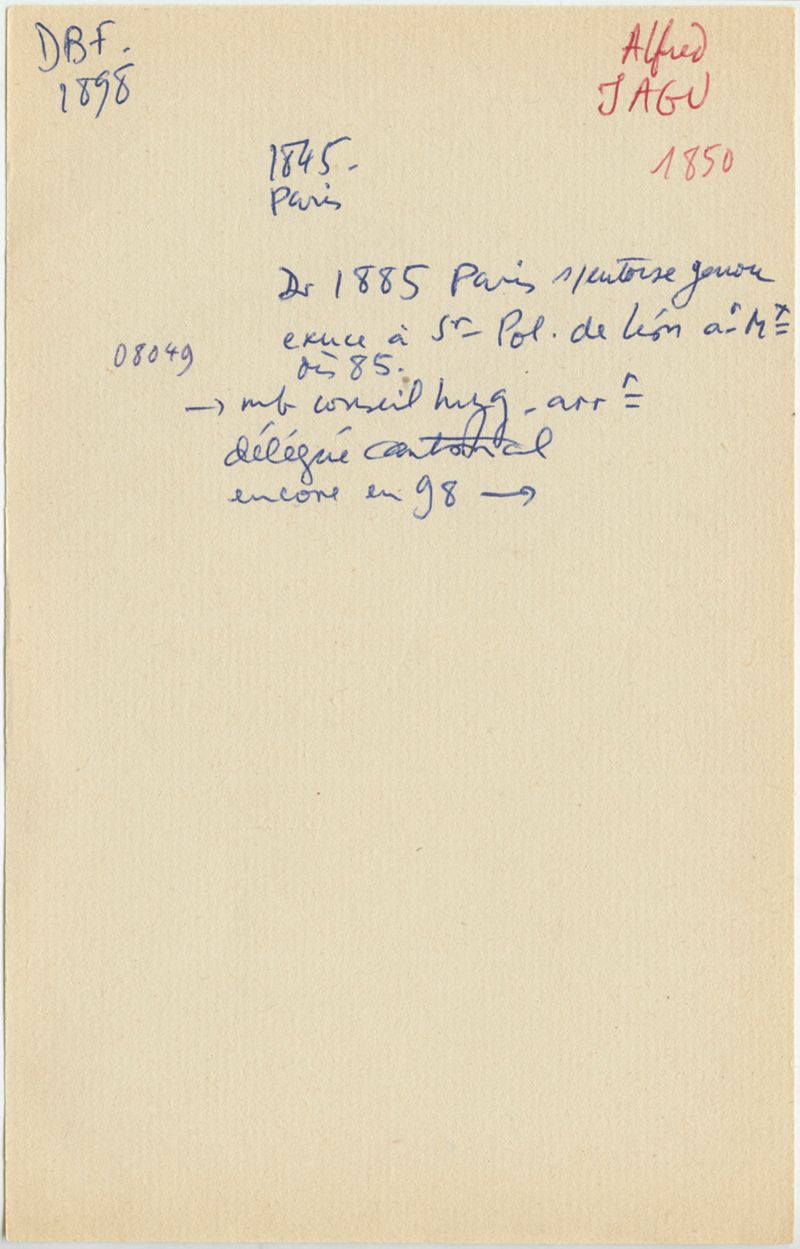 DBF.
1898
Alfred
JAGU
1850
1845.
Paris
Dr 1885 Paris s/entorse genou
exerce à St Pol. de Léon arr Mx
dès 85.
08049
→ mb conseil hyg. arrt
délégué cantonal
encore en 98 →